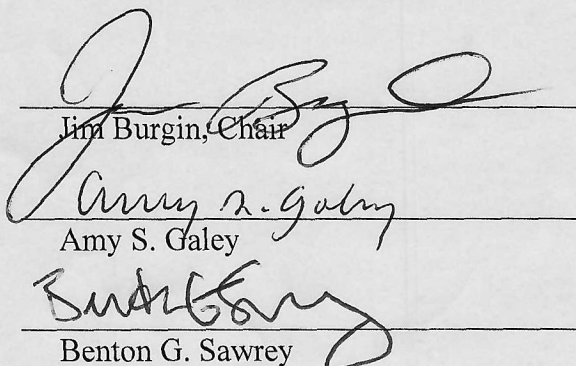 Jim Burgin, Chair
Amy S. Galey
Amy S. Galey
Benton G. Sawrey